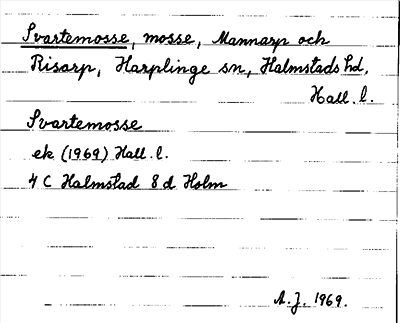 Svartemosse, mosse, Mannarp och
Risarp, Harplinge sn, Halmstads hd,
Hall. l.
Svartemosse
ek (1969) Hall. l.
4 C Halmstad 8 d Holm
A. J. 1969.